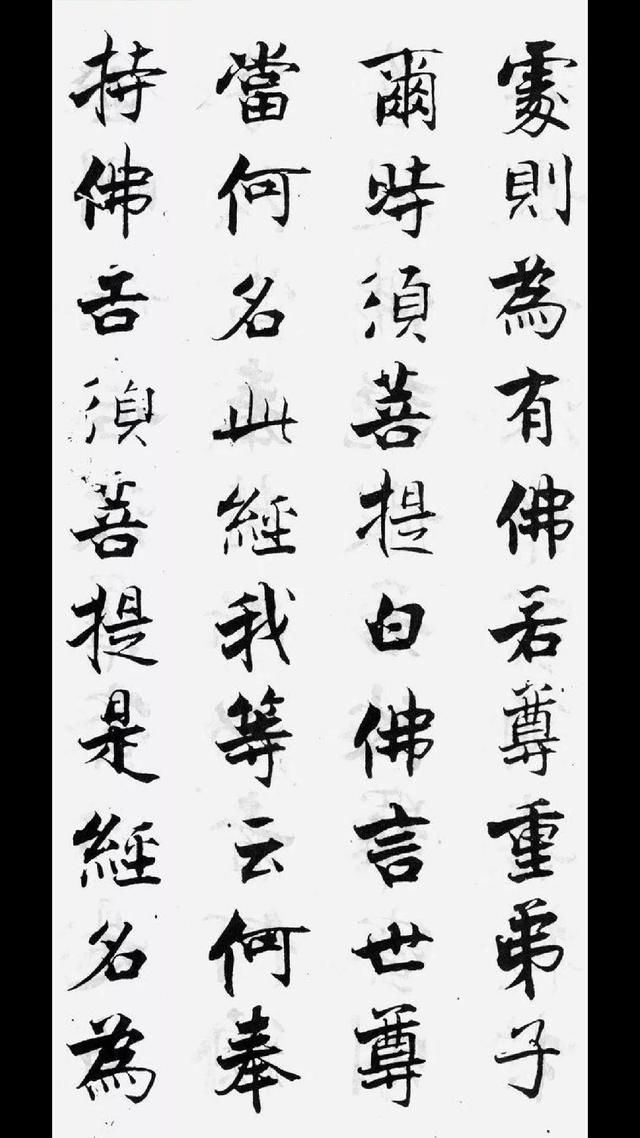 處則為有佛若尊重弟子
爾時須菩提白佛言世尊
當何名此經我等云何奉
持佛告須菩提是經名為